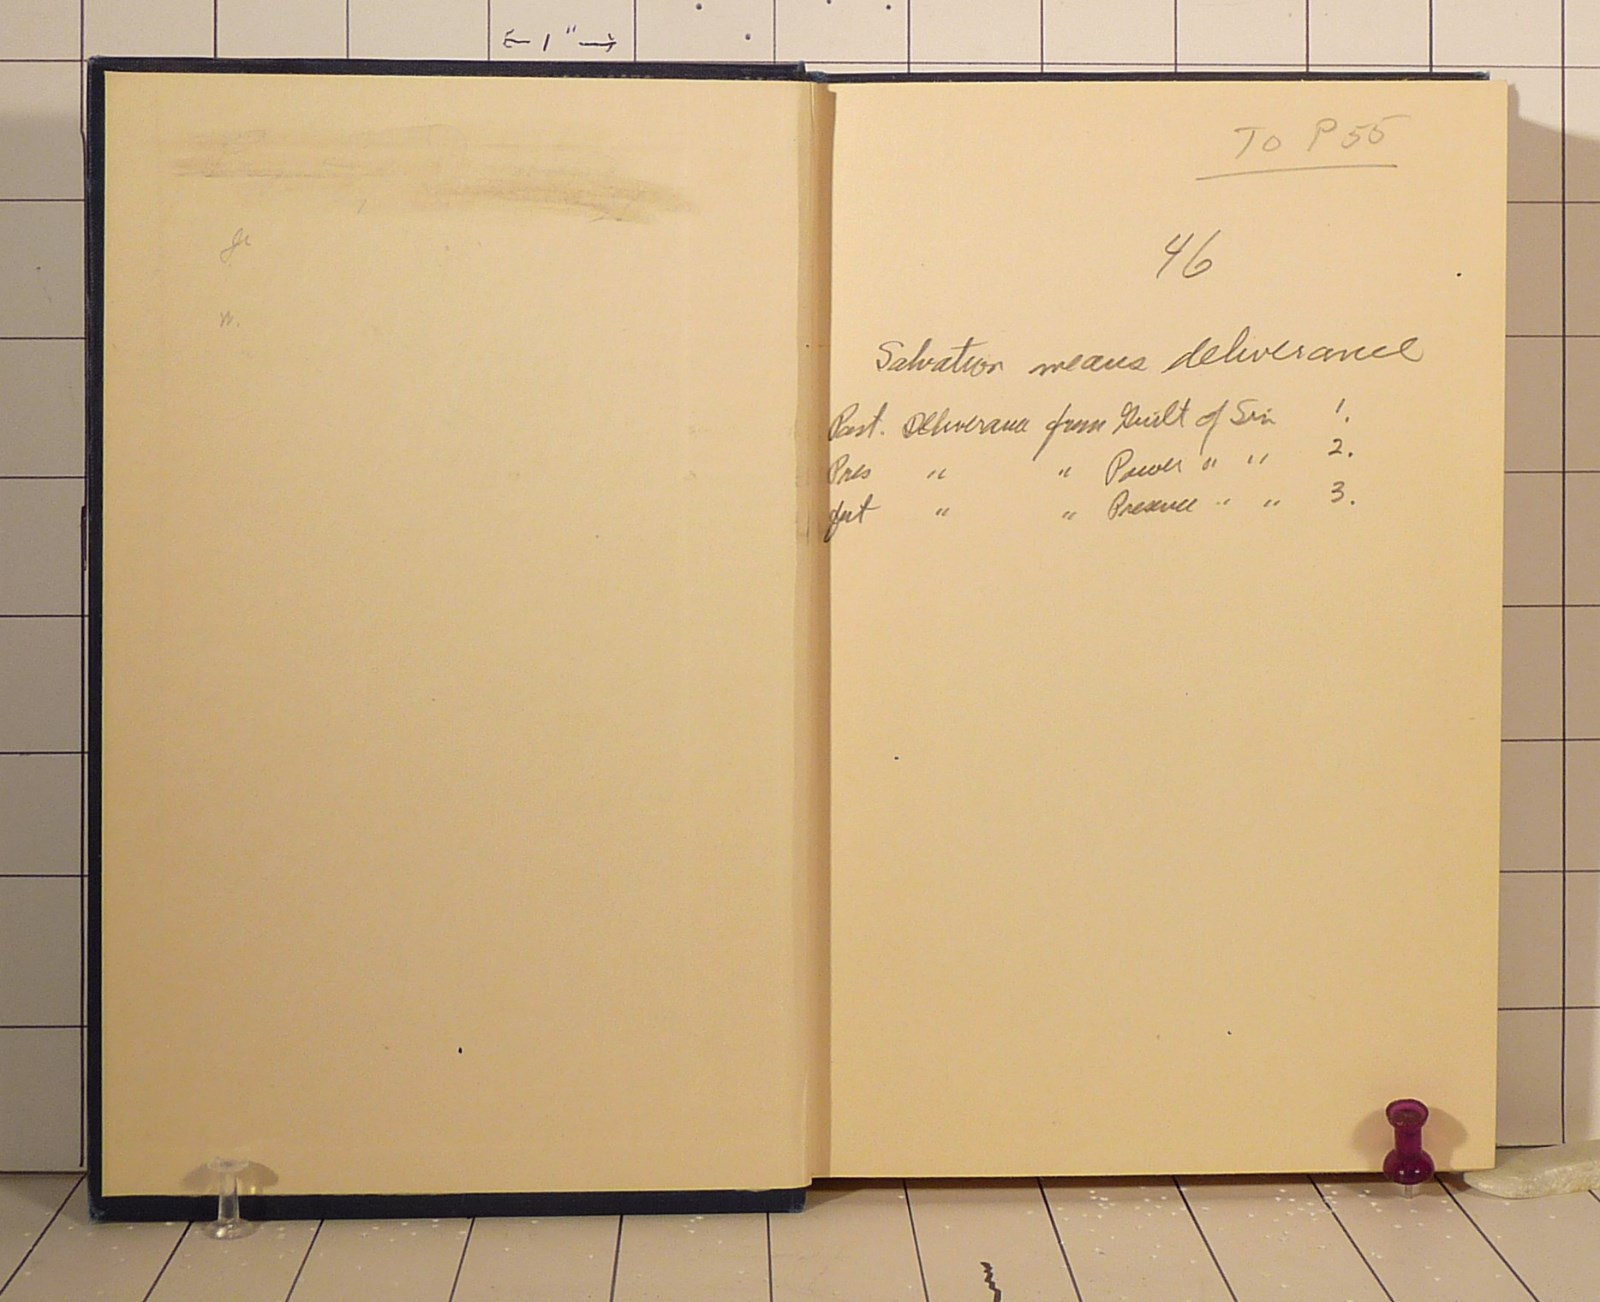 ← 1" →
To P 55
46
Salvation means deliverance
Past. Deliverance from Guilt of Sin 1.
Pres " " Power " " 2.
fut " " Presence " " 3.